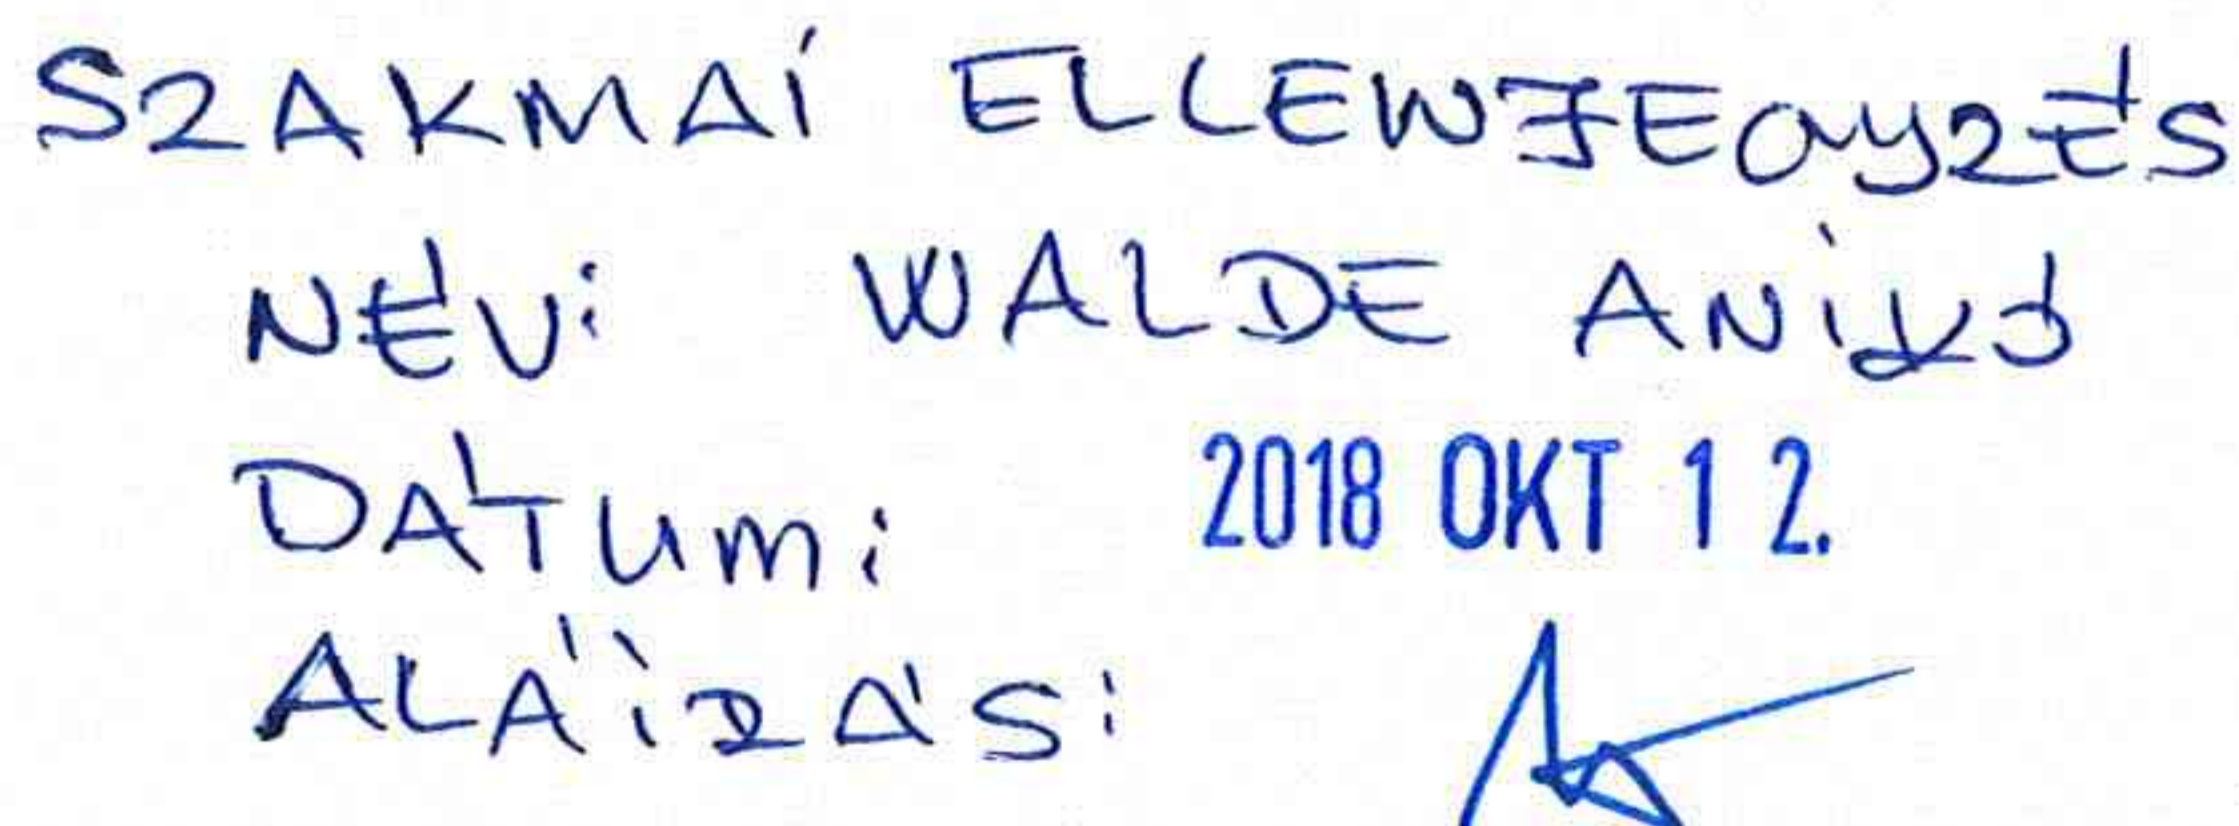 SZAKMAI ELLENJEGYZÉS
NÉV: WALDE ANIKÓ
DÁTUM: 2018 OKT 12.
ALÁÍRÁS: